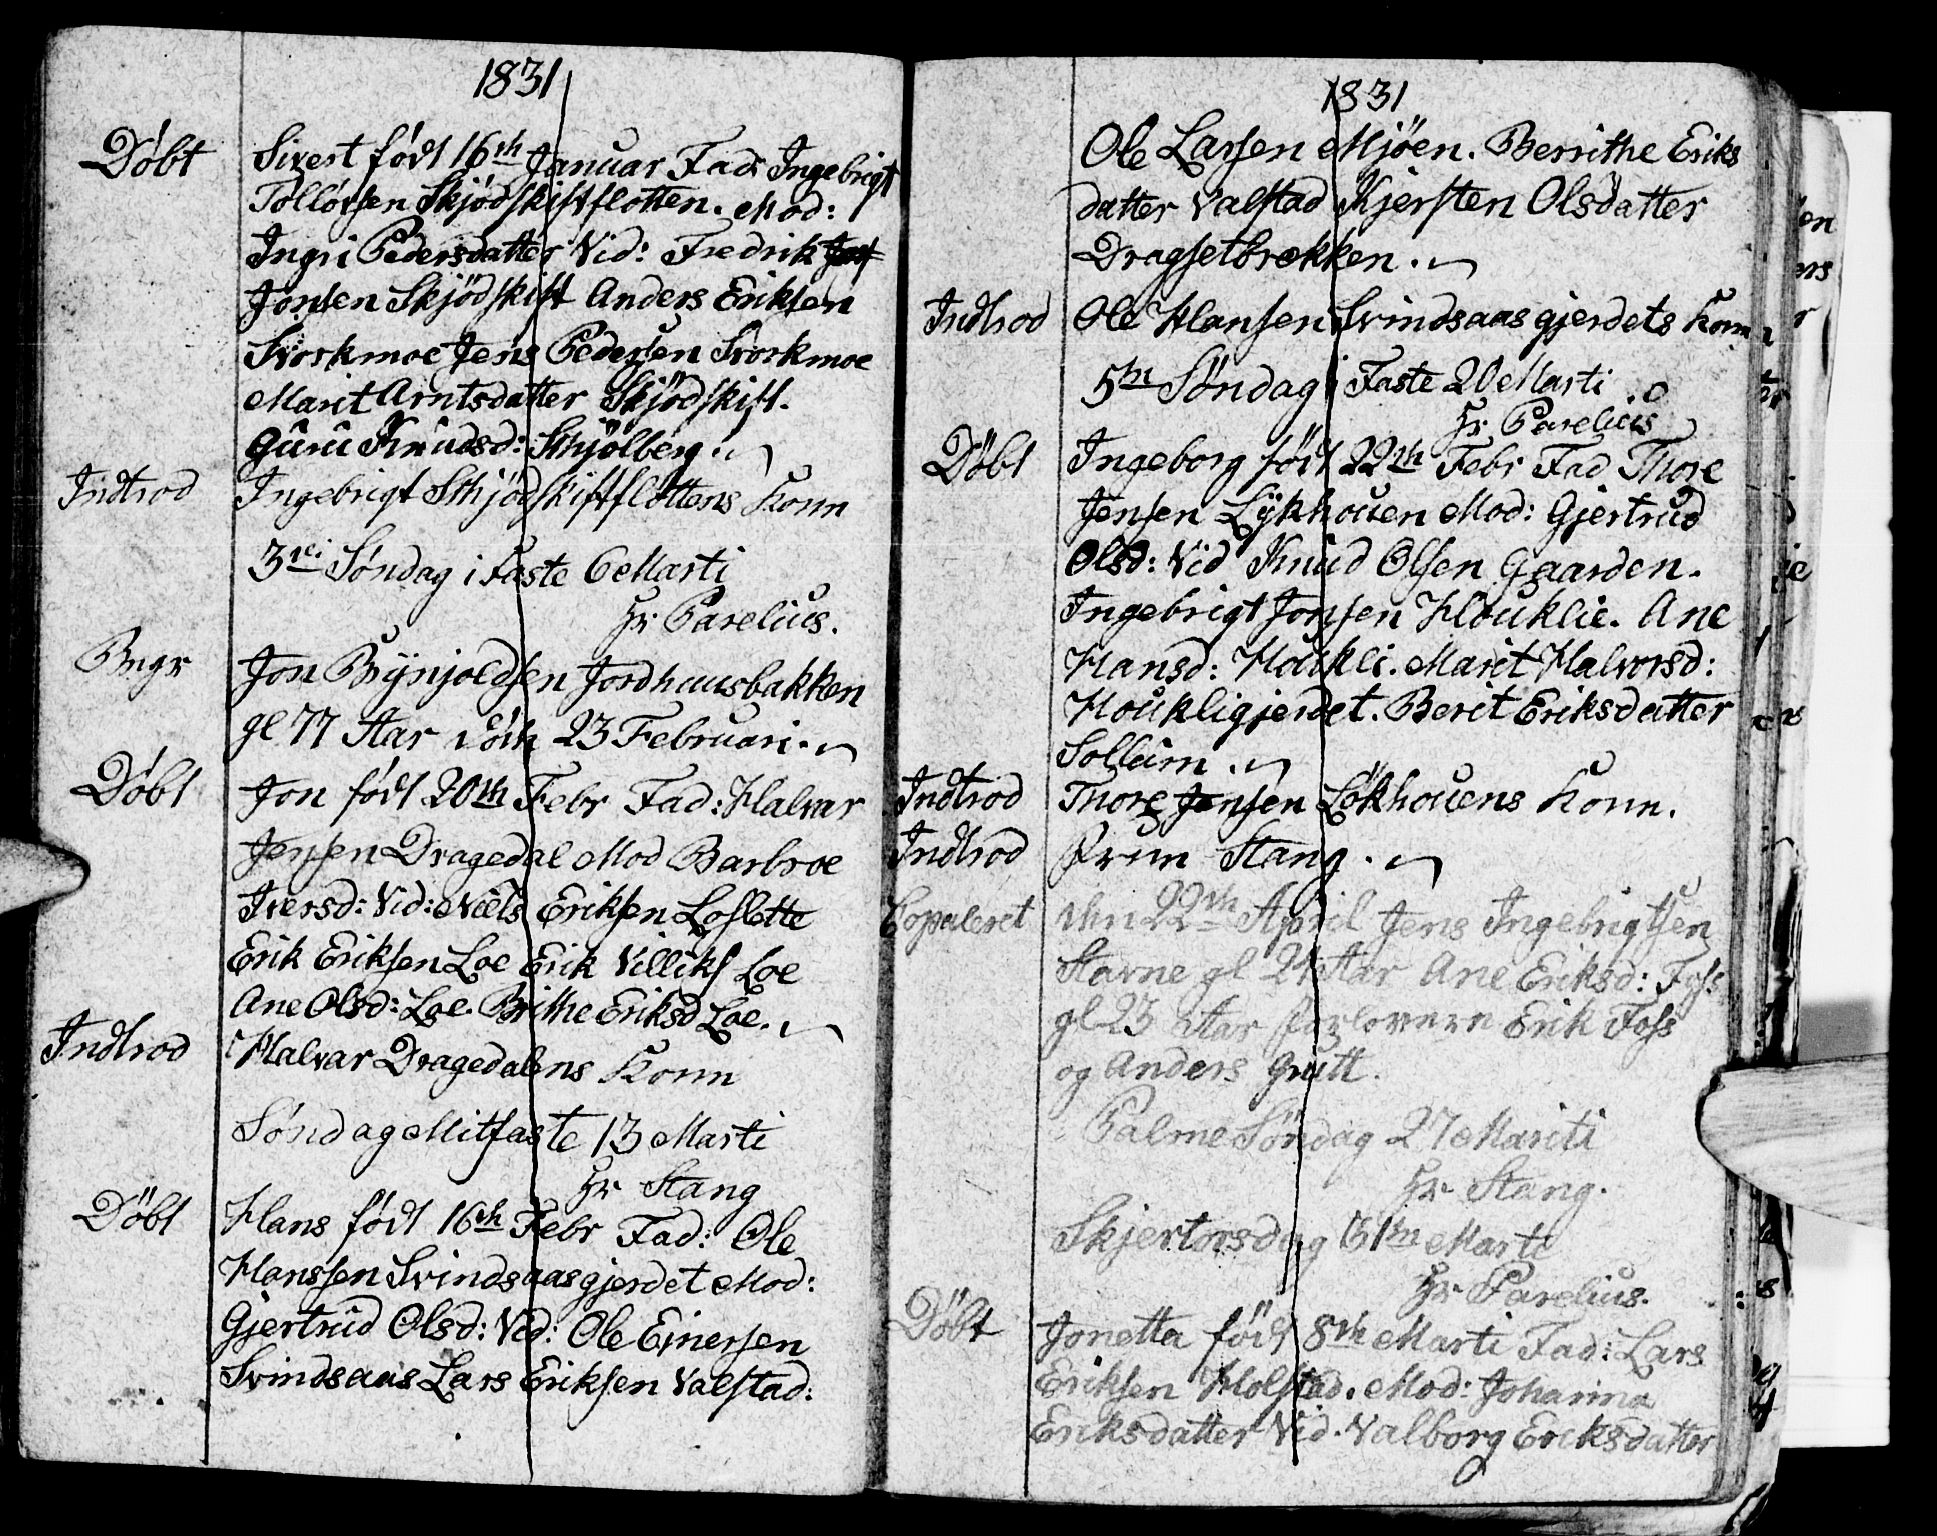 1831
Döbt Sivert födt 16th Januar Fad: Ingebrigt
Tollövsen Skjödskiftflotten. Mod:
Ingri Pedersdatter Vid: Fredrik
Jonsen Skjödskift Anders Eriksen
Svorkmoe Jens Pedersen Svorkmoe
Marit Arntsdatter Skjödskift.
Guru Knudsd: Skjölberg.
Indtrod Ingebrigt Skjödskiftflottens Konn
3die Söndag i Faste 6 Marti
Hr Parelius.
Begr Jon Brynjoldsen Jordhuusbakken
gl 77 Aar död 23 Februari.
Döbt Jon födt 20th Febr Fad: Halvar
Jensen Dragedal Mod Barbroe
Iversd: Vid: Niels Eriksen Loslette
Erik Eriksen Loe Erik Villiks Loe
Ane Olsd: Loe. Brithe Eriksd Loe.
Indtrod Halvar Dragedalens Konn
Söndag Mitfaste 13 Marti
Hr Stang
Döbt Hans födt 16th Febr Fad: Ole
Hanssen Svindsaasgjerdet Mod:
Gjertrud Olsd: Vid: Ole Einersen
Svindsaas Lars Eriksen Valstad:
1831
Ole Larsen Mjöen. Berrithe Eriks
datter Valstad Kjersten Olsdatter
Dragsetbrækken.
Indtrod Ole Hansen Svindsaasgjerdets Konn
5te Söndag i Faste 20 Marti
Hr Parelius
Döbt Ingeborg födt 22th Febr Fad Thore
Jensen Lykhouen Mod: Gjertrud
Olsd: Vid Knud Olsen Gaarden.
Ingebrigt Jonsen Houklie. Ane
Hansd: Houkli. Marit Halvorsd:
Houkligjerdet. Berit Eriksdatter
Sollum.
Indtrod Thore Jensen Lökhouens Konn.
Indtrod Frun Stang.
Copuleret den 22th April Jens Ingebrigtsen
Stavne gl 24 Aar Ane Eriksd: Foss
gl 23 Aar Forlovere Erik Foss
og Anders Grutt.
Palme Söndag 27 Mariti
Hr Stang.
Skjertorsdag 31te Marti
Hr Parelius.
Döbt Jonetta födt 8th Marti Fad: Lars
Eriksen Holstad. Mod: Johanna
Eriksdatter Vid. Valborg Eriksdatter